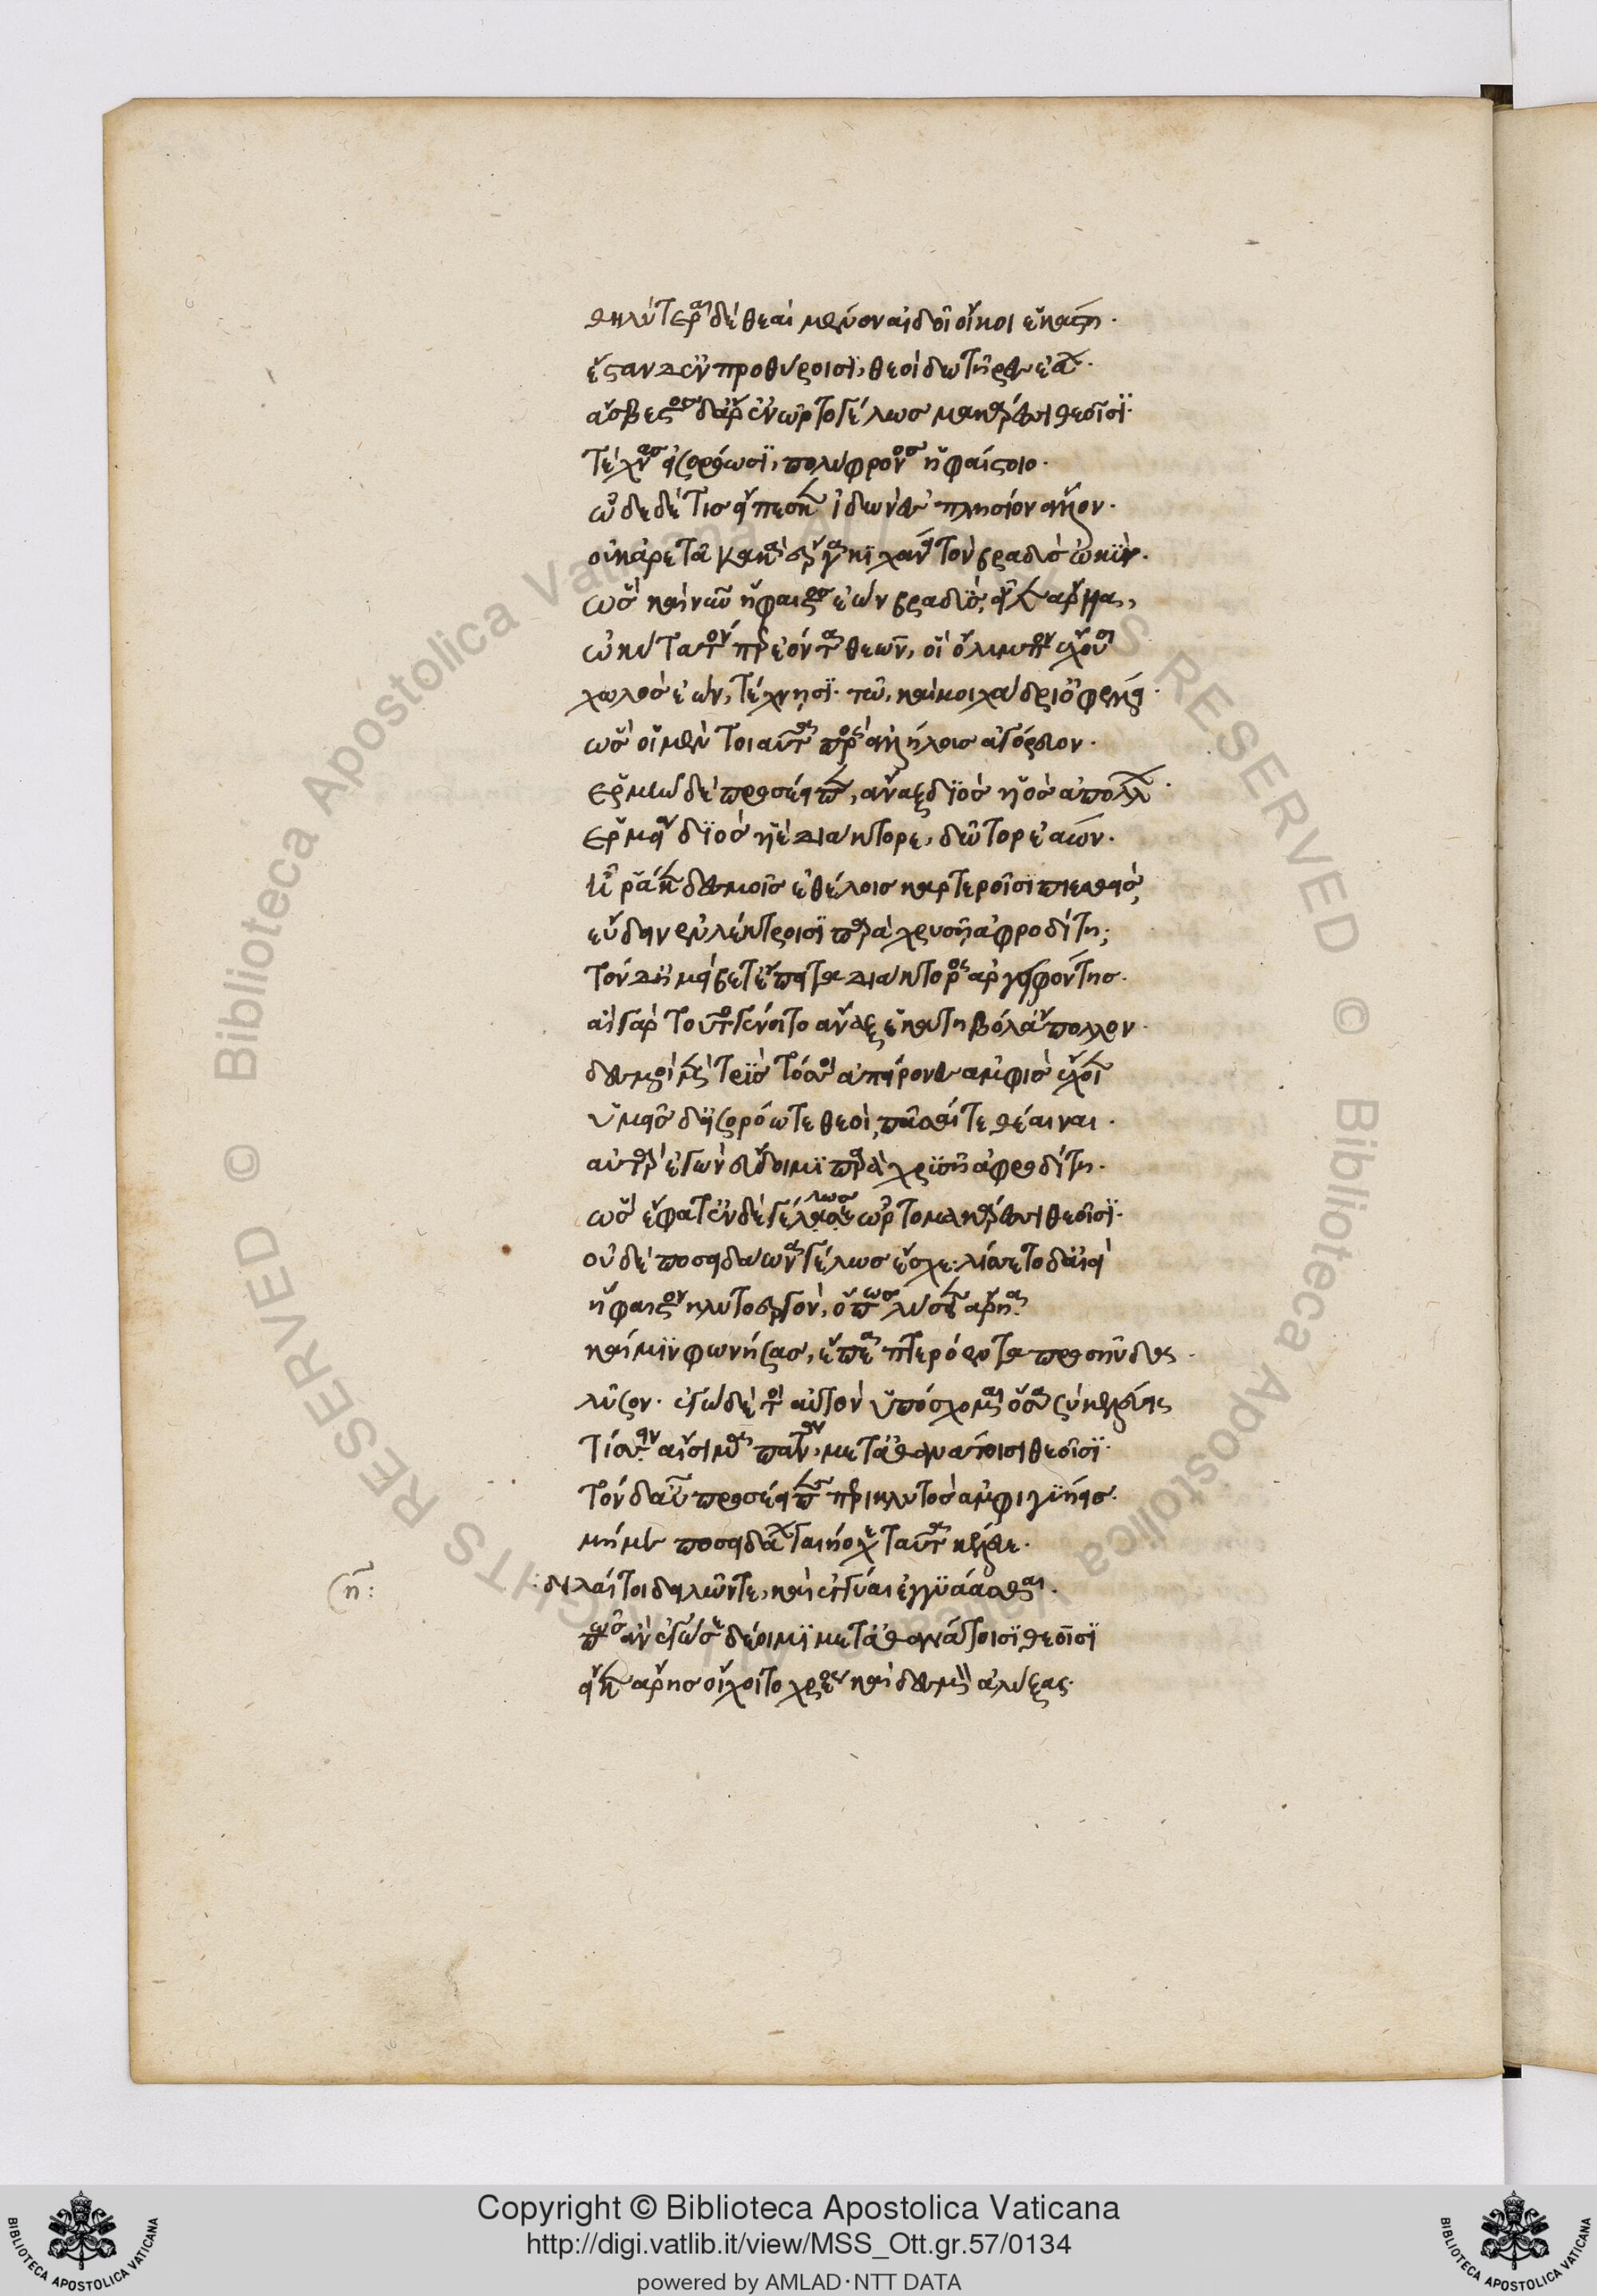 θηλύτεραι δὲ θεαὶ μένον αἰδοῖ οἴκοι ἑκάστη·
ἔσταν δ' ἐν προθύροισϊ, θεοὶ δωτῆρες ἐάων·
ἄσβεστος δ' ἄρ' ἐνῶρτο γέλως μακάρεσσι θεοῖσϊ·
τέχνας εἰσορόωσϊ, πολύφρονος ἡφαίστοιο·
ὧδε δέ τις εἴπεσκεν ἰδὼν ἐς πλησίον ἄλλον·
οὐκ ἀρετᾶ κακὰ ἔργα κιχάνει τοι βραδὺς ὠκὺν·
ὡς καὶ νῦν ἥφαιστος ἐὼν βραδὺς, εἷλεν ἄρηα,
ὠκύτατόν περ ἐόντα θεῶν, οἳ ὄλυμπον ἔχουσι
χωλὸς ἐών, τέχνησϊ· τῶ, καὶ μοιχάγρι' ὀφείλει·
ὣς οἱ μὲν τοιαῦτα πρὸς ἀλλήλους ἀγόρευον·
ἑρμῆν δὲ προσέειπεν, ἄναξ διὸς υἱὸς ἀπόλλων·
ἑρμεία διὸς υἱὲ διάκτορε, δῶτορ ἐάων·
ἦ ῥά κεν δεσμοῖς ἐθέλοις κρατεροῖσι πιεσθεὶς,
εὕδειν ἐν λέκτροισϊ παρὰ χρυσῆ ἀφροδίτη;
τὸν δ' ἠμείβετ' ἔπειτα διάκτορος ἀργειφόντης·
αἲ γὰρ τοῦτο γένοιτο ἄναξ ἑκατηβόλ' ἄπολλον·
δεσμοὶ μὲν τρὶς τόσσοι ἀπείρονες ἀμφὶς ἔχοιεν
ὑμεῖς δ' εἰσορόωτε θεοὶ, πᾶσαί τε θέαιναι·
αὐτὰρ ἐγὼν εὕδοιμι παρὰ χρυσῆ ἀφροδίτη·
ὣς ἔφατ' ἐν δὲ γέλως ὦρτο μακάρεσσι θεοῖσϊ·
οὐδὲ ποσειδάωνα γέλως ἔχε· λίσσετο δ' αἰεὶ
ἥφαιστον κλυτοεργὸν, ὅπως λύσειεν ἄρηα·
καί μιν φωνήσας, ἔπεα πτερόεντα προσηύδα·
λῦσον· ἐγὼ δέ τοι αὐτὸν ὑπόσχομαι ὡς σὺ κελεύεις
τίσειν αἴσιμα πάντα, μετ' ἀθανάτοισι θεοῖσϊ·
τὸν δ' αὖτε προσέειπε περικλυτὸς ἀμφιγυήεις·
μή με ποσείδαον γαιήοχε ταῦτα κέλευε·
δειλαί τοι δειλῶν τε, καὶ ἐγγύαι ἐγγυάασθαι·
πῶς ἂν ἐγώ σε δέοιμι μετ' ἀθανάτοισϊ θεοῖσϊ
εἴ κεν ἄρης οἴχοιτο χρέος καὶ δεσμὸν ἀλύξας·
Copyright © Biblioteca Apostolica Vaticana
http://digi.vatlib.it/view/MSS_Ott.gr.57/0134
powered by AMLAD·NTT DATA